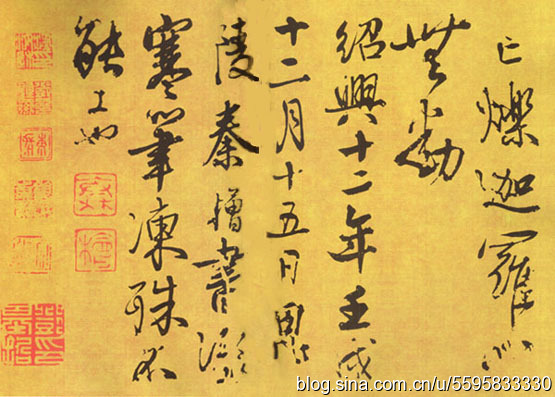 亡爍迦羅心
無動
紹興十二年壬戌
十二月十五日
陵秦檜書深
寒筆凍殊不
能工也
秦檜
blog.sina.com.cn/u/5595833330